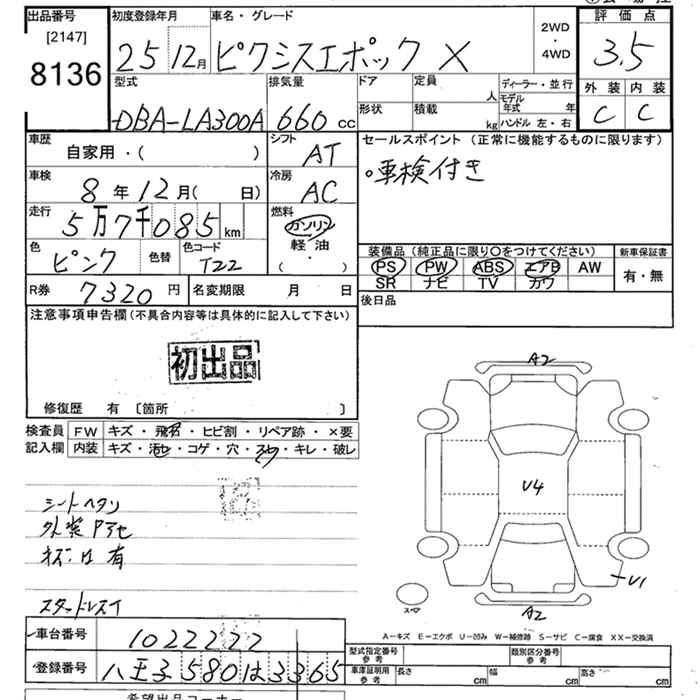 出品番号
[2147]
8136
初度登録年月
25 12月
車名・グレード
ピクシスエポック X
2WD
・
4WD
評価点
3.5
型式
DBA-LA300A
排気量
660 cc
ドア
定員
人
形状
積載
kg
ディーラー・並行
モデル年式 年
ハンドル 左・右
外装 内装
C C
車歴
自家用・( )
シフト
AT
車検
8年12月( 日)
冷房
AC
走行
5万7千085km
燃料
ガソリン
軽油
・
( )
色
ピンク
色替
色コード
T22
R券
7320円
名変期限 月 日
セールスポイント (正常に機能するものに限ります)
。車検付き
装備品(純正品に限り〇をつけてください)
PS PW ABS エアB AW
SR ナビ TV カワ
新車保証書
有・無
後日品
注意事項申告欄(不具合内容等は具体的に記入して下さい)
初出品
修復歴 有 〔箇所 〕
検査員
記入欄
FW キズ・飛石・ヒビ割・リペア跡・×要
内装 キズ・汚れ・コゲ・穴・スレ・キレ・破レ
シートヘタリ
外装
有
スタッドレスイ
A2
U4
U1
A2
スペア
A-キズ E-エクボ U-凹み W-補修跡 S-サビ C-腐食 XX-交換済
車台番号
1022222
登録番号
八王子580は3365
型式指定番号
参考
類別区分番号
参考
車庫証明用
参考
長さ cm
幅 cm
高さ cm
希望出品コーナー